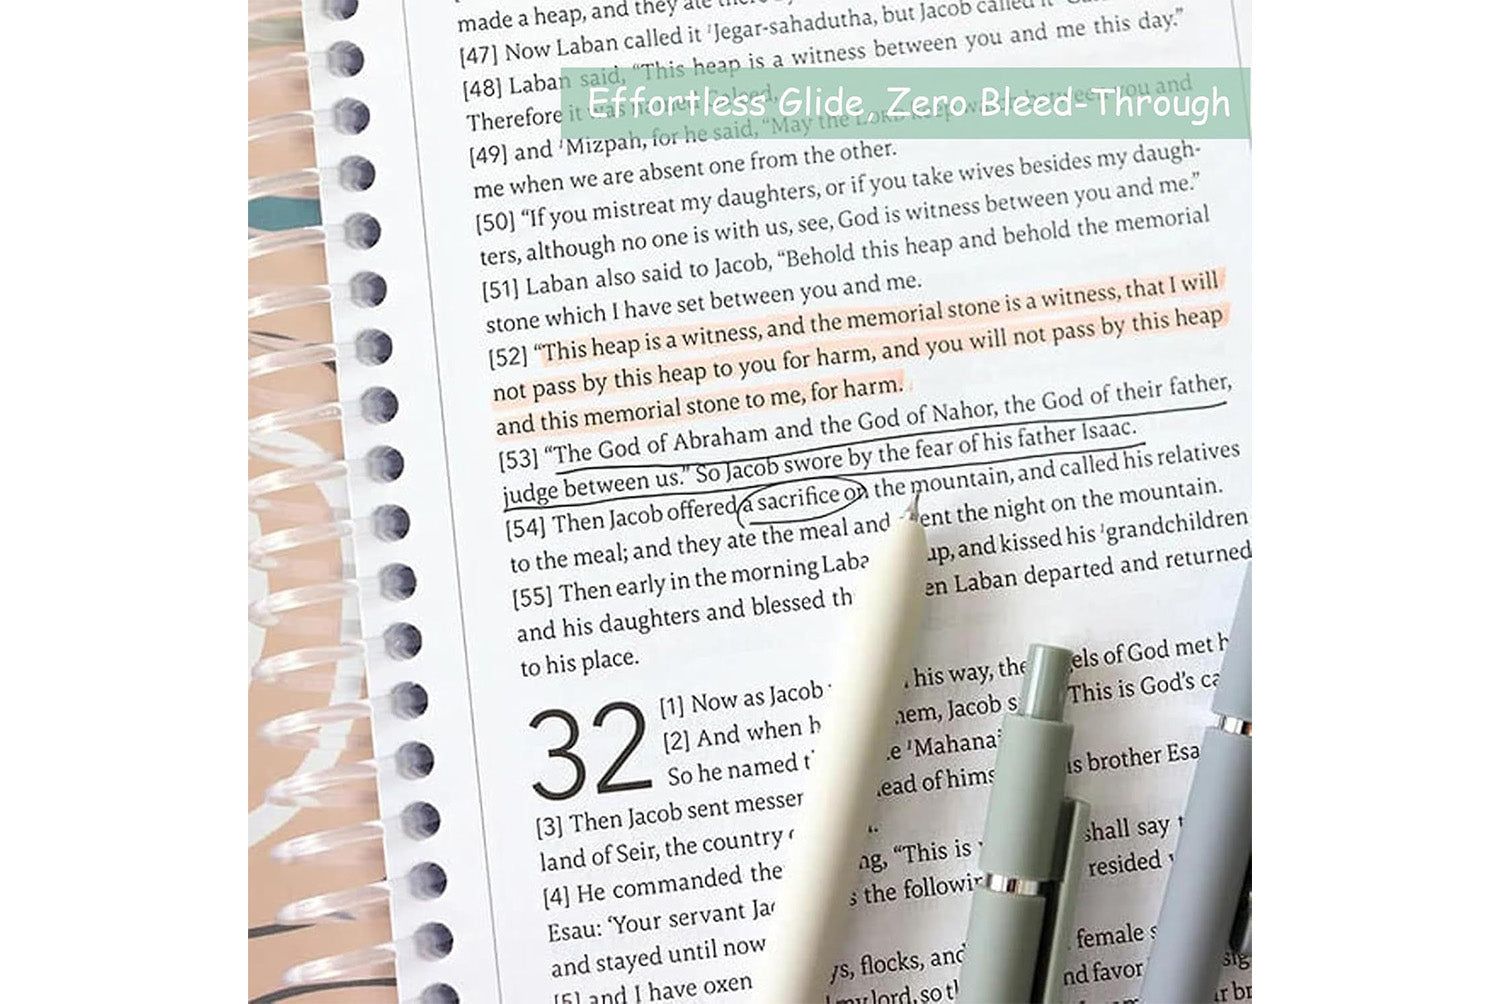 made a heap, and they ate
[47] Now Laban called it ¹Jegar-sahadutha, but Jacob called it
[48] Laban said, “This heap is a witness between you and me this day.”
Effortless Glide, Zero Bleed-Through
Therefore it was named Galeed,
[49] and ¹Mizpah, for he said, “May the LORD keep watch between you and
me when we are absent one from the other.
[50] “If you mistreat my daughters, or if you take wives besides my daugh-
ters, although no one is with us, see, God is witness between you and me.”
[51] Laban also said to Jacob, “Behold this heap and behold the memorial
stone which I have set between you and me.
[52] “This heap is a witness, and the memorial stone is a witness, that I will
not pass by this heap to you for harm, and you will not pass by this heap
and this memorial stone to me, for harm.
[53] “The God of Abraham and the God of Nahor, the God of their father,
judge between us.” So Jacob swore by the fear of his father Isaac.
[54] Then Jacob offered a sacrifice on the mountain, and called his relatives
to the meal; and they ate the meal and ent the night on the mountain.
[55] Then early in the morning Laba up, and kissed his ¹grandchildren
and his daughters and blessed th en Laban departed and returned
to his place.
32 [1] Now as Jacob his way, the els of God met h
[2] And when h hem, Jacob s This is God’s ca
So he named t e ¹Mahanai
[3] Then Jacob sent messer ead of hims is brother Esa
land of Seir, the country
[4] He commanded the ng, “This is shall say
Esau: ‘Your servant Ja s the followin resided
and stayed until now
[5] and I have oxen ys, flocks, and female s
my lord, so t nd favor sig